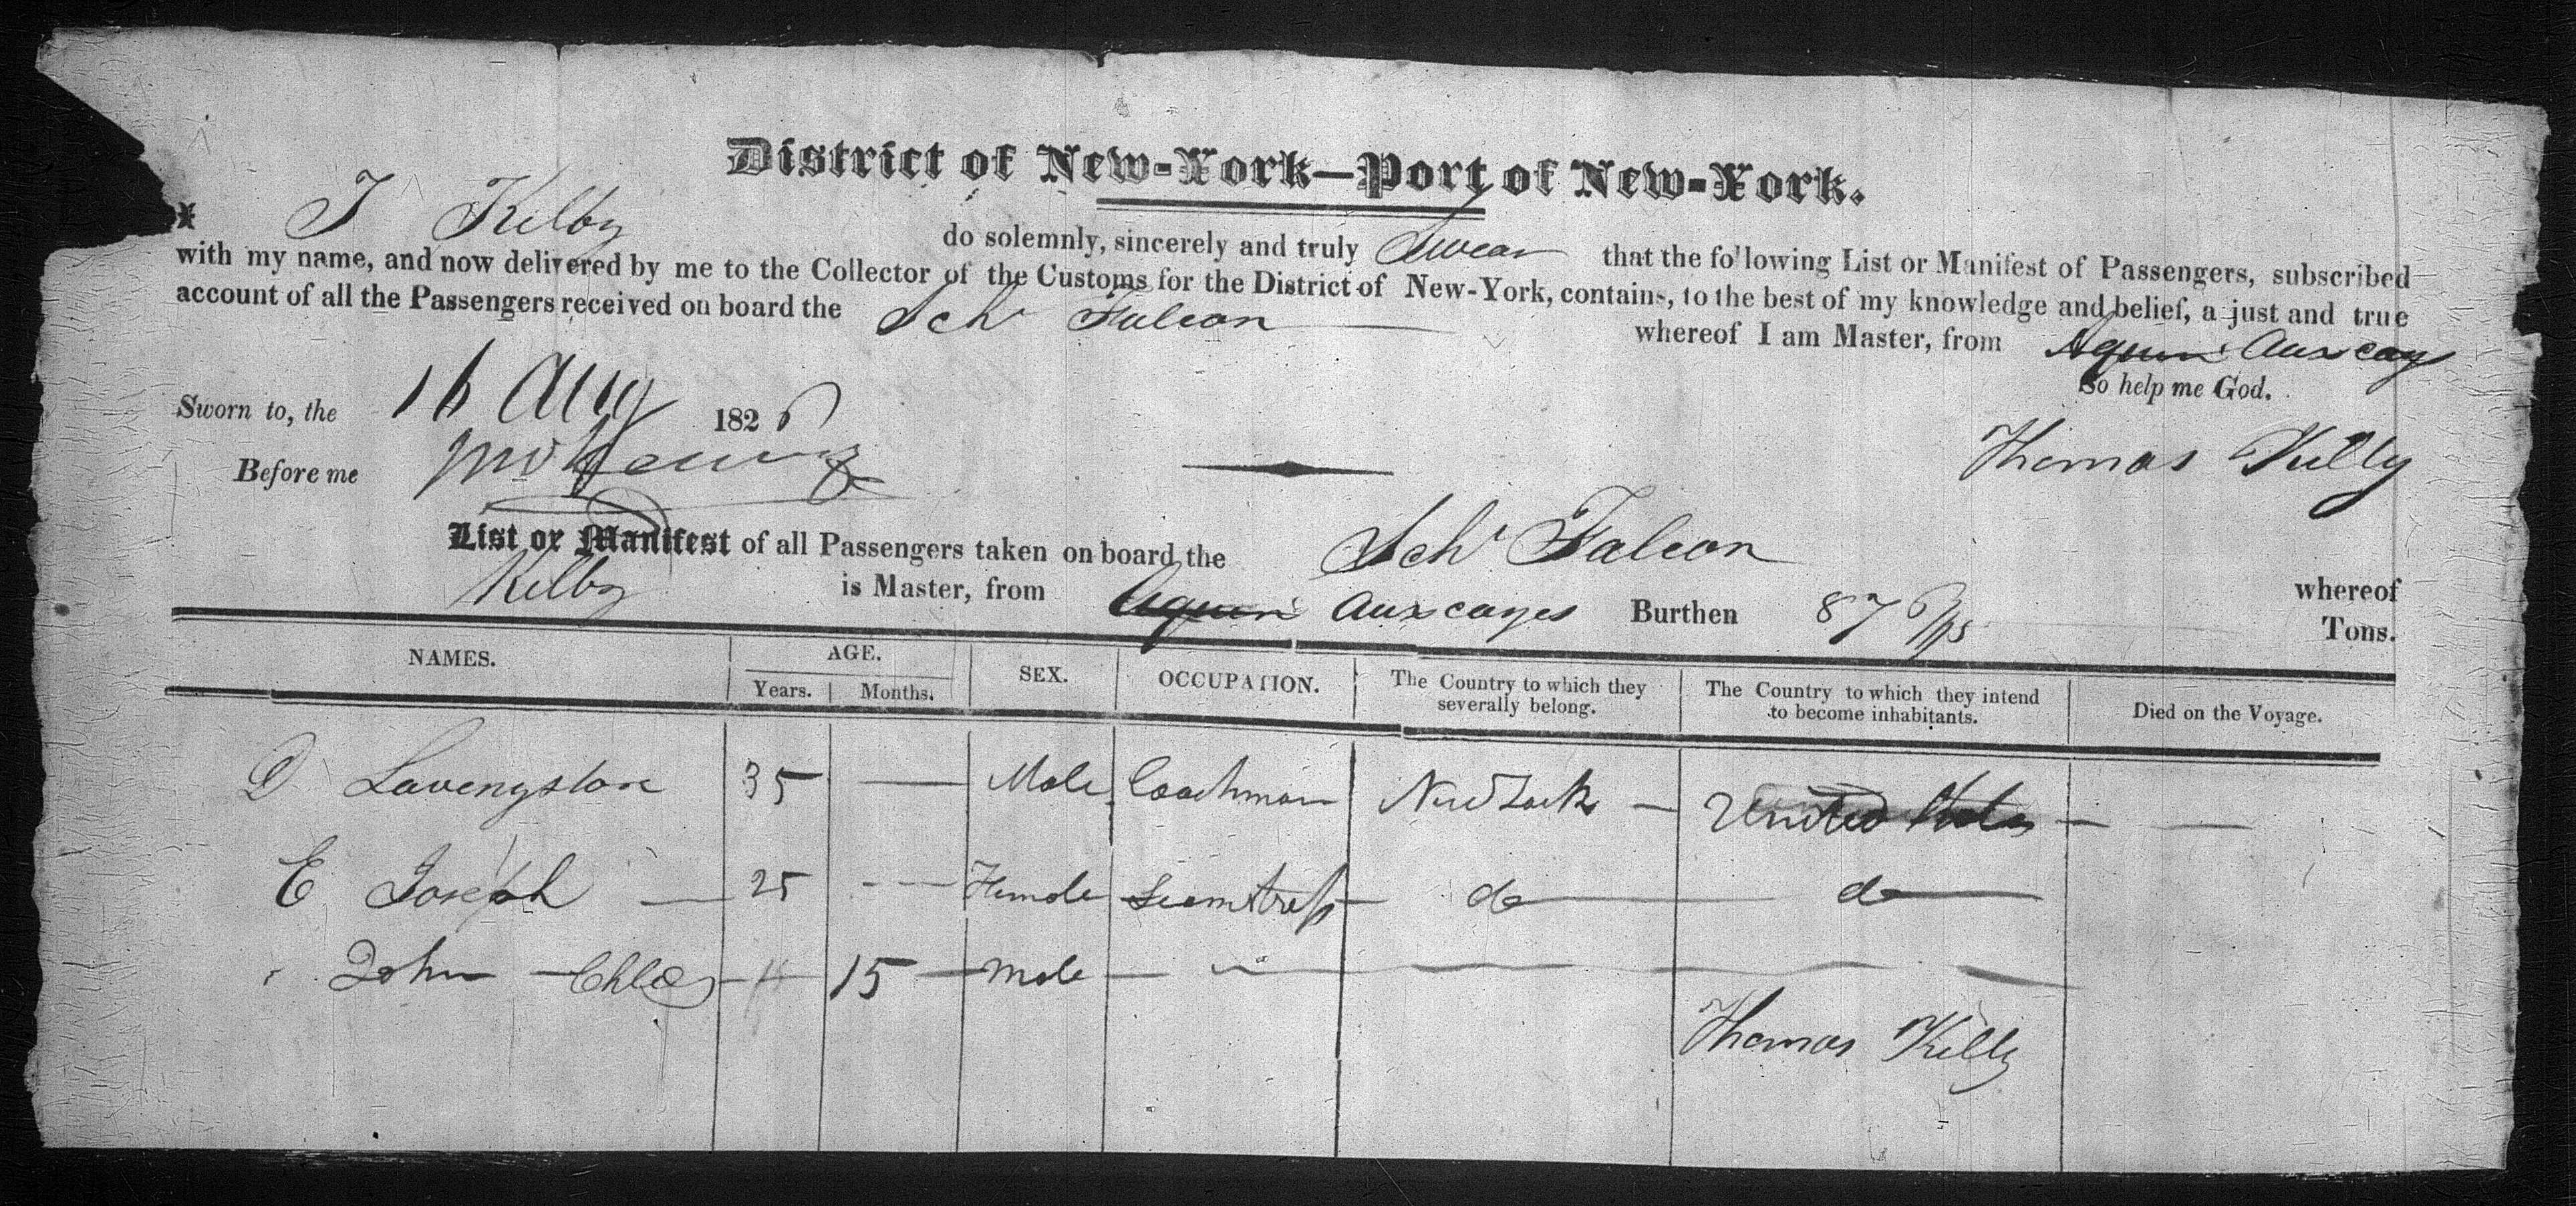 District of New-York—Port of New-York.
I T Kelby do solemnly, sincerely and truly Swear that the following List or Manifest of Passengers, subscribed
with my name, and now delivered by me to the Collector of the Customs for the District of New-York, contains, to the best of my knowledge and belief, a just and true
account of all the Passengers received on board the Schr Falcon whereof I am Master, from Aquin Auxcays
So help me God.
Sworn to, the 16 Aug 1826
Before me
Thomas Kelby
List or Manifest of all Passengers taken on board the Schr Falcon whereof
Kelby is Master, from Aquin Auxcayes Burthen 87 Tons.
NAMES. AGE. SEX. OCCUPATION. The Country to which they severally belong. The Country to which they intend to become inhabitants. Died on the Voyage.
Years. Months.
D Lavengston 35 — Male Coachman New York — United States — —
E Joseph — 25 — Female Seamstress — do do
John 15 — Male —
Thomas Kelby